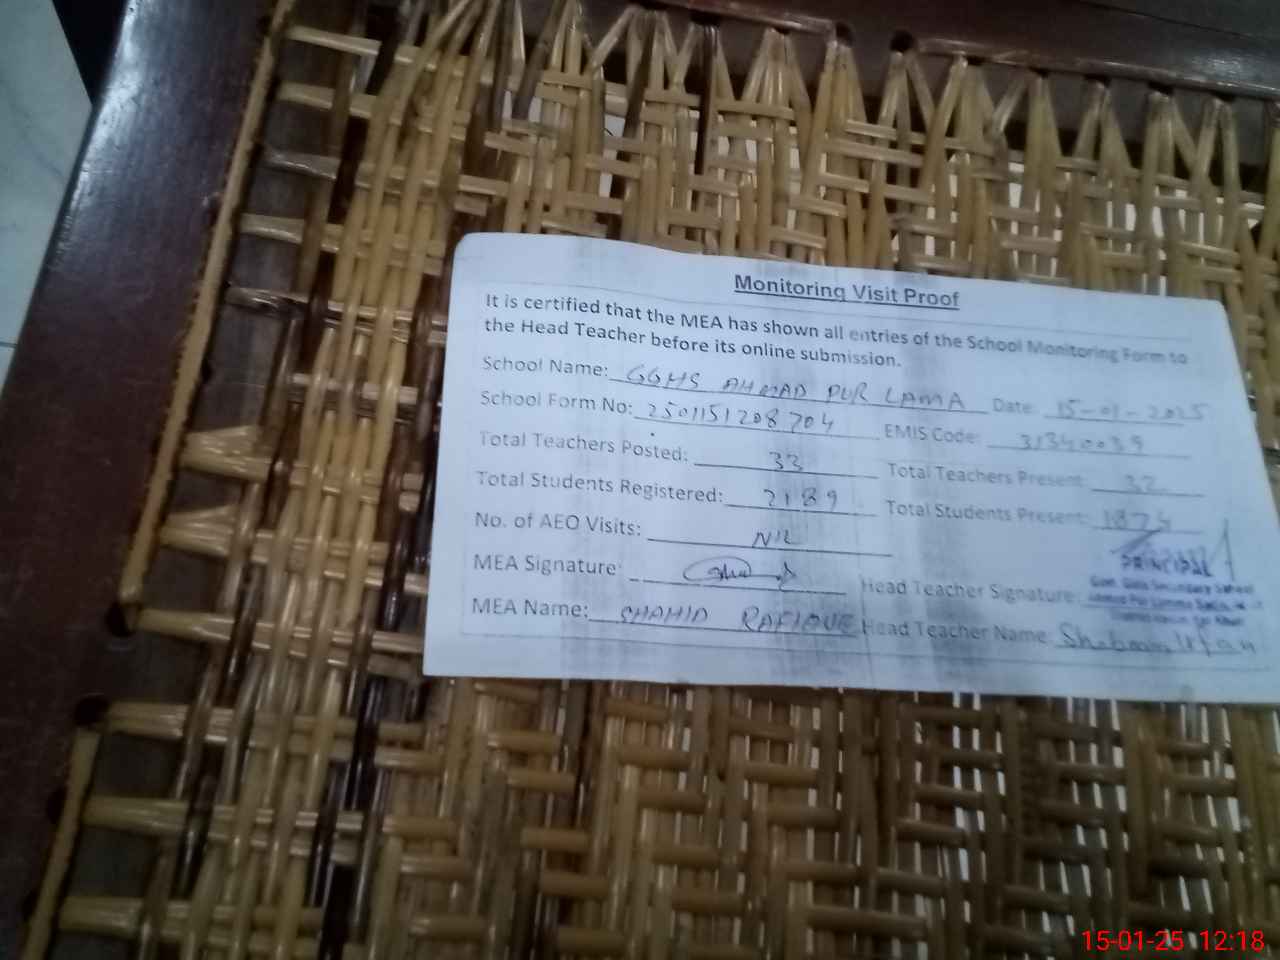 Monitoring Visit Proof
It is certified that the MEA has shown all entries of the School Monitoring Form to
the Head Teacher before its online submission.
School Name: GGHS AHMAD PUR LAMA Date: 15-01-2025
School Form No: 2501151208704 EMIS Code: 31340039
Total Teachers Posted: 33 Total Teachers Present: 32
Total Students Registered: 2189 Total Students Present: 1874
No. of AEO Visits: NIL
PRINCIPAL
MEA Signature: Head Teacher Signature:
MEA Name: SHAHID RAFIQUE Head Teacher Name: Shabnam Irfan
15-01-25 12:18